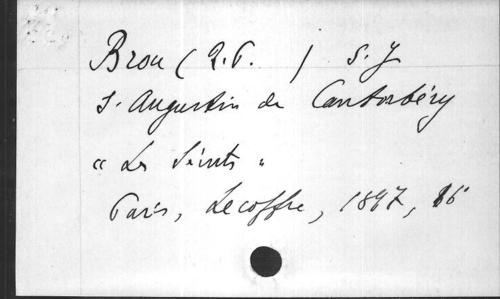 Brou (R.P. ) S.J
S. Augustin de Cantorbéry
"Les Saints"
Paris, Lecoffre, 1897, 16°